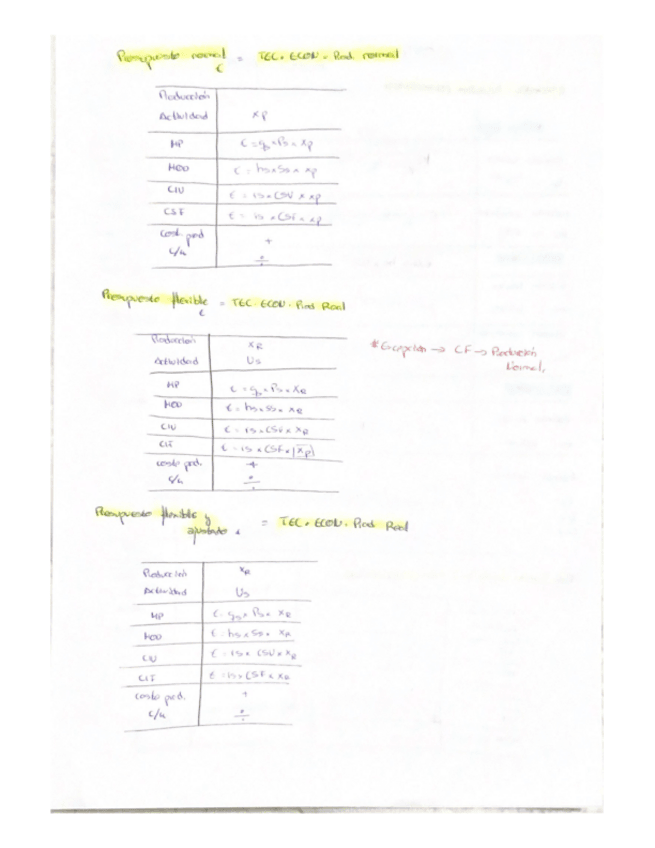 Presupuesto normal = TEC. ECON. Prod normal
€
Producción
Actividad xp
MP € = qs × Ps × xp
MOD € = hs × Ss × xp
CIV € = is × CSV × xp
CSF € = is × CSF × xp
Cost. prod +
c/u ÷
Presupuesto flexible = TEC. ECON. Prod Real
€
Producción xR
Actividad Us
MP € = qs × Ps × xR
MOD € = hs × Ss × xR
CIV € = is × CSV × xR
CIF € = is × CSF × xp
costo prod. +
c/u ÷
* Excepción → CF → Producción
Normal.
Presupuesto flexible y
ajustado = TEC. ECON. Prod Real
Producción xR
Actividad Us
MP € = qs × Ps × xR
MOD € = hs × Ss × xR
CIV € = is × CSV × xR
CIF € = is × CSF × xR
costo prod. +
c/u ÷